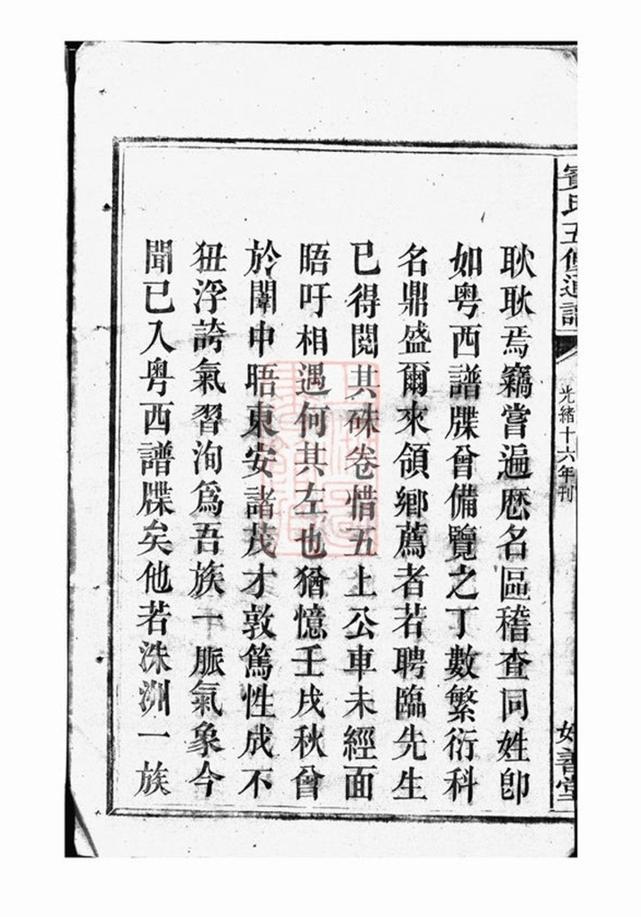 五修通譜
光緒十六年刊
善堂
耿耿焉竊嘗遍厯名區稽查同姓卽
如粤西譜牒曾備覽之丁數繁衍科
名鼎盛爾來領鄉薦者若聘臨先生
已得閱其硃卷惜五上公車未經面
晤吁相遇何其左也猶憶壬戌秋曾
於闈中晤東安諸茂才敦篤性成不
狃浮誇氣習洵爲吾族一脈氣象今
聞已入粤西譜牒矣他若洙泖一族